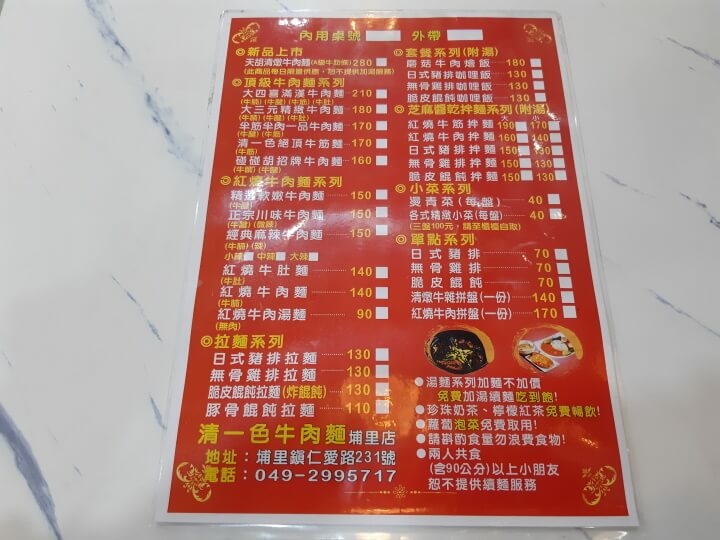 內用桌號 外帶
◎新品上市
天胡清燉牛肉麵(A級牛肋條)280
(此商品每日限量供應,恕不提供加湯服務)
◎頂級牛肉麵系列
大四喜滿漢牛肉麵 210
(牛腩)(牛腱)(牛筋)(牛肚)
大三元精緻牛肉麵 180
(牛腩)(牛腱)(牛肚)
半筋半肉一品牛肉麵 170
(牛腱)(牛筋)
清一色絕頂牛筋麵 170
(牛筋)
碰碰胡招牌牛肉麵 160
(牛腩)(牛腱)
◎紅燒牛肉麵系列
精選軟嫩牛肉麵 150
(牛腱)
正宗川味牛肉麵 150
(牛腱)(微辣)
經典麻辣牛肉麵 150
(牛腩)(辣)
小辣 中辣 大辣
紅燒牛肚麵 140
(牛肚)
紅燒牛肉麵 140
(牛腩)
紅燒牛肉湯麵 90
(無肉)
◎拉麵系列
日式豬排拉麵 130
無骨雞排拉麵 130
脆皮餛飩拉麵(炸餛飩) 130
豚骨餛飩拉麵 110
清一色牛肉麵 埔里店
地址:埔里鎮仁愛路231號
電話:049-2995717
◎套餐系列(附湯)
蘑菇牛肉燴飯 180
日式豬排咖哩飯 130
無骨雞排咖哩飯 130
脆皮餛飩咖哩飯 130
◎芝麻醬乾拌麵系列(附湯)
大 小
紅燒牛筋拌麵 190 170
紅燒牛肉拌麵 160 140
日式豬排拌麵 150 130
無骨雞排拌麵 150 130
脆皮餛飩拌麵 150 130
◎小菜系列
燙青菜(每盤) 40
各式精緻小菜(每盤) 40
(三盤100元,請至櫃檯自取)
◎單點系列
日式豬排 70
無骨雞排 70
脆皮餛飩 70
清燉牛雜拼盤(一份) 140
紅燒牛肉拼盤(一份) 170
●湯麵系列加麵不加價
免費加湯續麵吃到飽!
●珍珠奶茶、檸檬紅茶免費暢飲!
●蘿蔔泡菜免費取用!
●請斟酌食量勿浪費食物!
●兩人共食
(含90公分)以上小朋友
恕不提供續麵服務